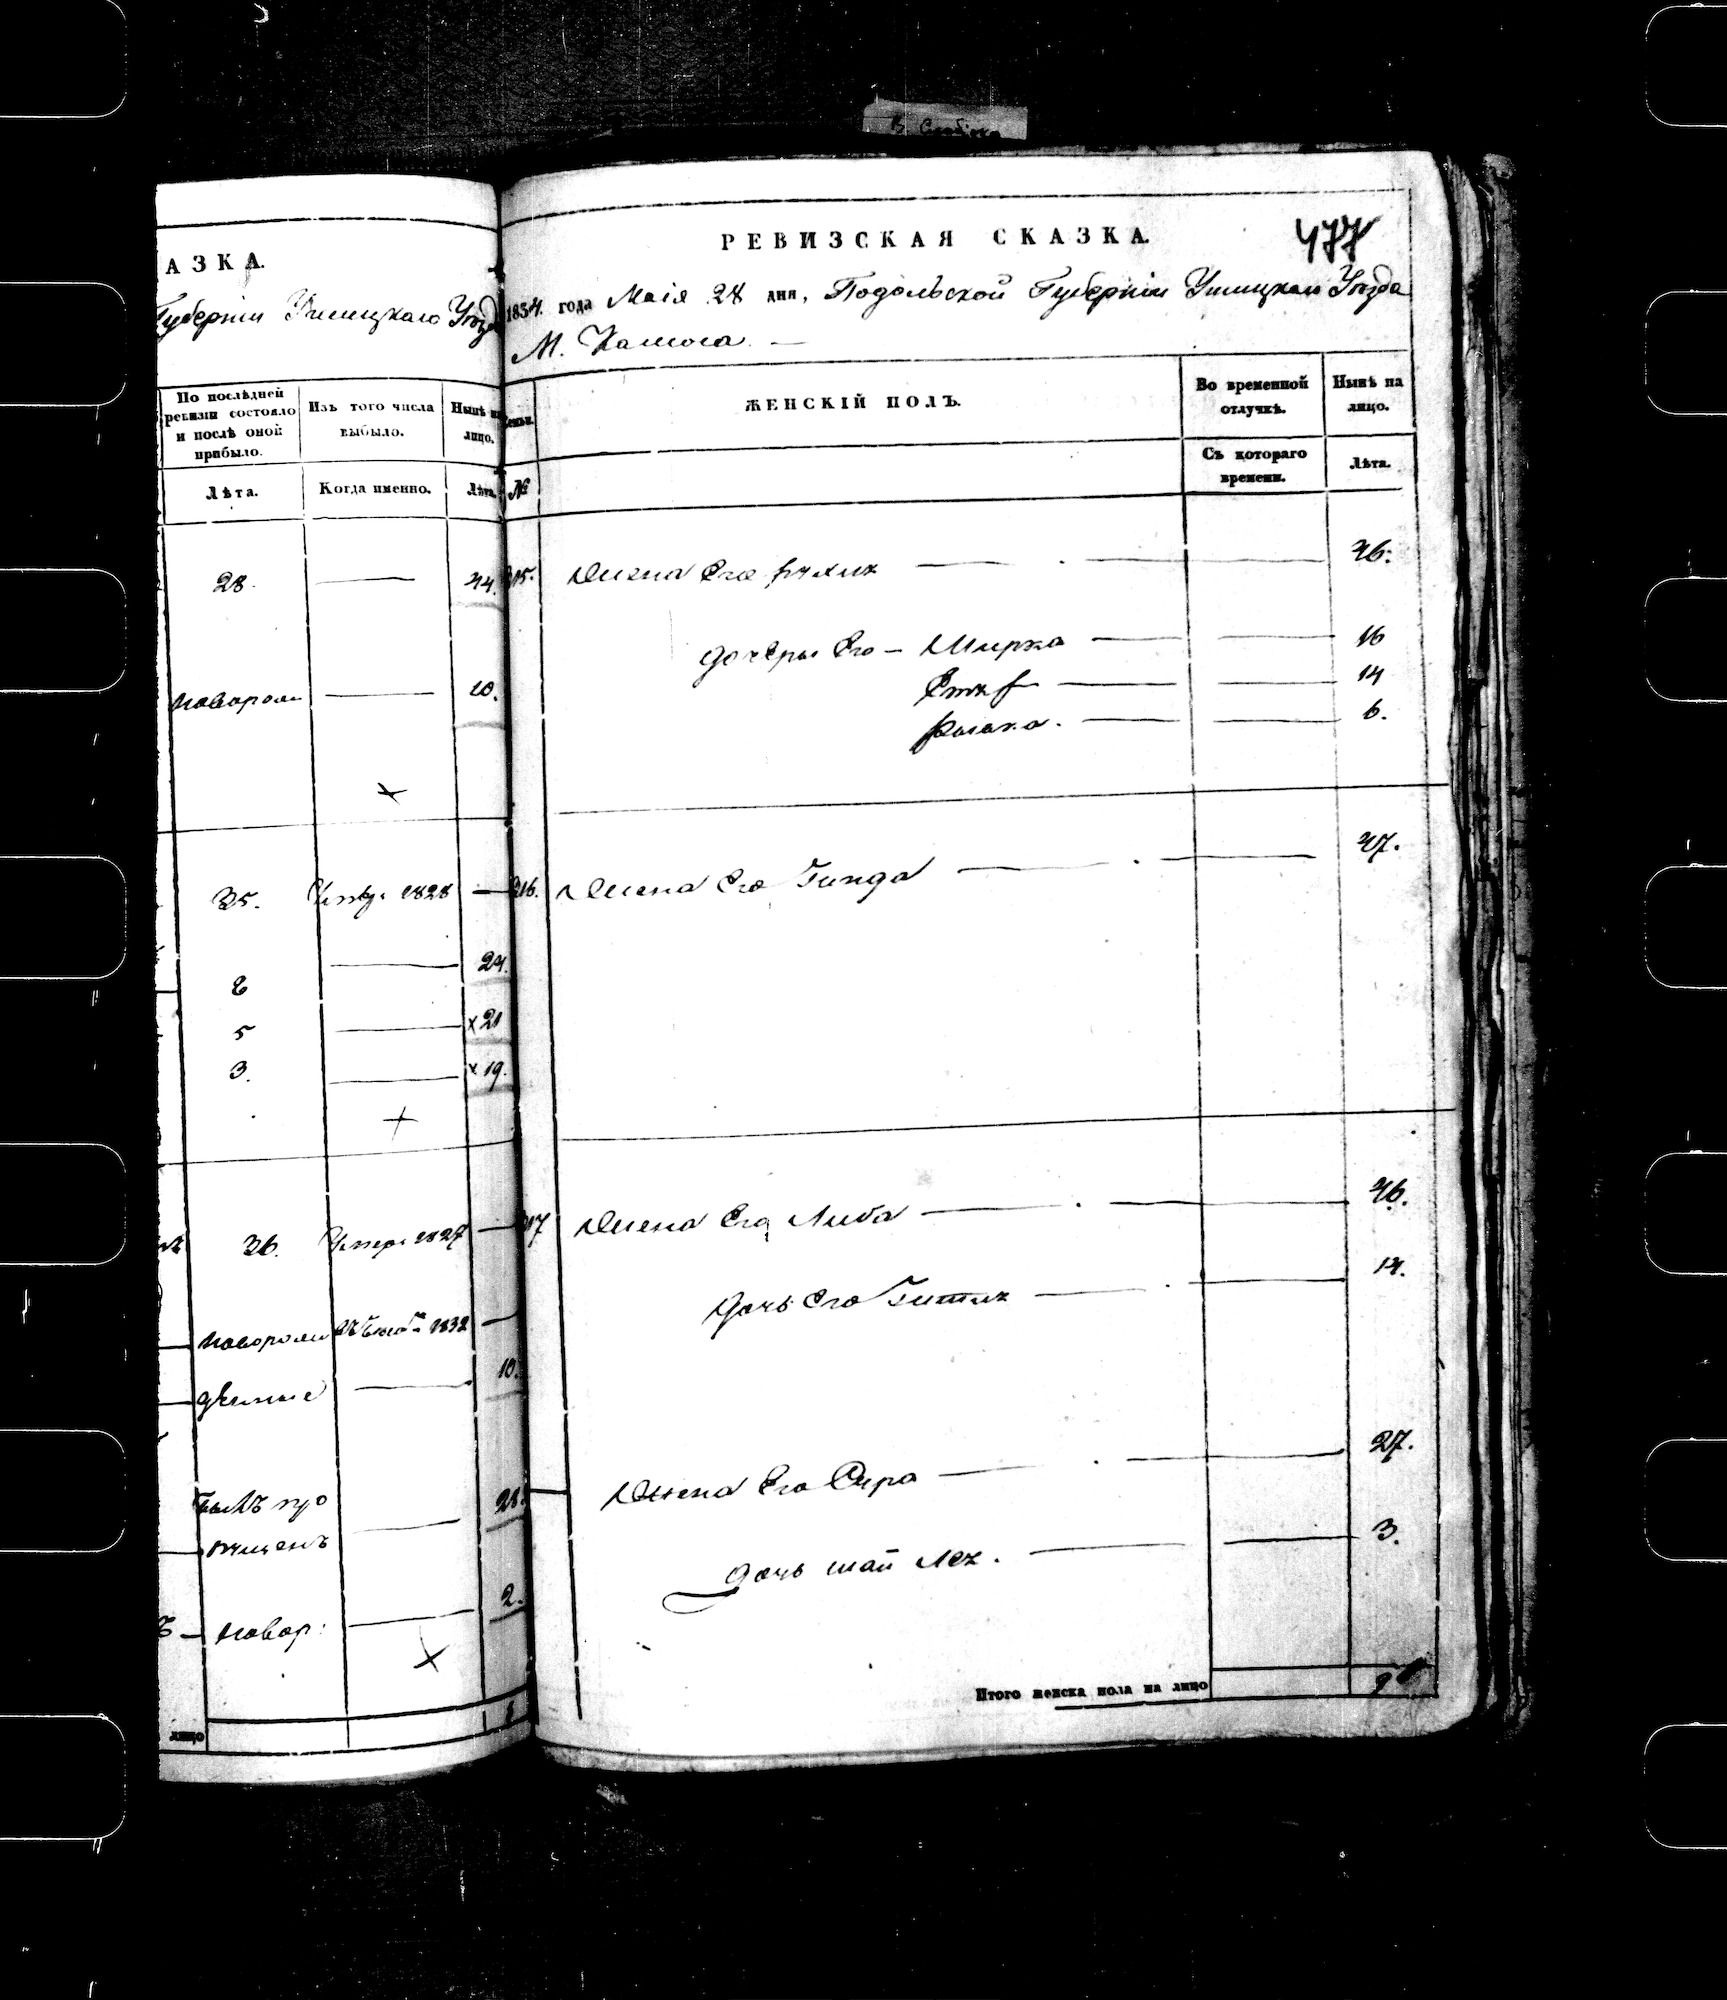 АЗКА.
Губерніи Ушицкаго Уѣзда
По послѣдней
ревизіи состояло
и послѣ оной
прибыло.
Изъ того числа
выбыло.
Нынѣ на
лицо.
Лѣта.
Когда именно.
Лѣта.
28.
44.
новорож
10.
35.
1828
8
24.
5
21
3.
19.
36.
1827
новорож
1832
10.
былъ про
пущенъ
28.
новор:
2.
лицо
РЕВИЗСКАЯ СКАЗКА.
477
1854. года Маія 28 дня, Подольской Губерніи Ушицкаго Уѣзда
М.
Семьи.
ЖЕНСКІЙ ПОЛЪ.
Во временной
отлучкѣ.
Нынѣ на
лицо.
№
Съ котораго
времени.
Лѣта.
215. Жена Его 46.
Дочери Его – Мирка 16
14
6.
216. Жена Его Гинда 47.
217 Жена Его Либа 46.
Дочь Его Гитля 14.
Жена Его Сура 27.
Дочь Лея. 3.
Итого женска пола на лицо 9